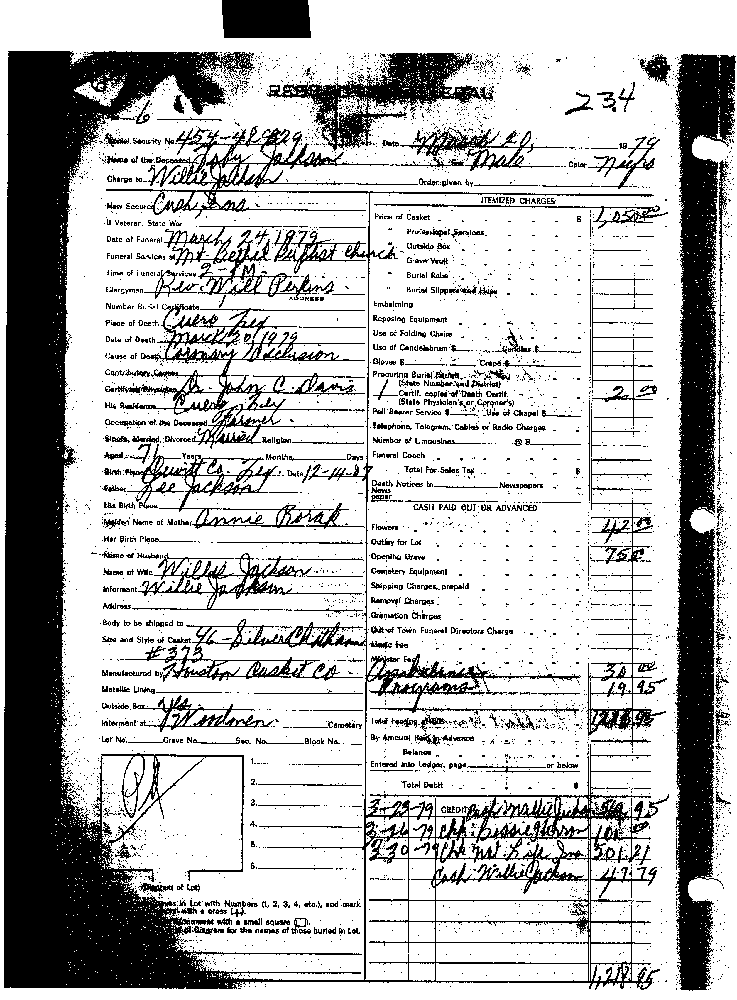 234
6
Social Security No.
Date March 20, 1979
Name of the Deceased Toby Jackson Male Color Negro
Charge to Willie Jackson Order given by
How Secured Cash, Ins.
If Veteran, State War
Date of Funeral March 24, 1979
Funeral Services at Mt Bethel Baptist Church
Time of Funeral Services 2- PM
Clergyman Rev. Will Perkins
ADDRESS
Number Burial Certificate
Place of Death Cuero Tex
Date of Death March 20, 1979
Cause of Death Coronary Occlusion
Contributory Causes
Certifying Physician Dr. John C. Davis
His Residence Cuero Tex
Occupation of the Deceased Farmer
Single, Married, Divorced Married Religion
Aged 71 Years Months Days
Birth Place Dewitt Co. Tex. Date 12-14-07
Father Lee Jackson
His Birth Place
Maiden Name of Mother Annie
Her Birth Place
Name of Husband
Name of Wife Willie Jackson
Informant Willie Jackson
Address
Body to be shipped to
Size and Style of Casket Silver
#373
Manufactured by Houston Casket Co.
Metallic Lining
Outside Box yes
Interment at Woodmen Cemetery
Lot No. Grave No. Sec. No. Block No.
1.
2.
3.
4.
5.
6.
Pd
(Diagram of Lot)
in Lot with Numbers (1, 2, 3, 4, etc.), and mark
with a cross (+).
with a small square (□).
of Diagram for the names of those buried in Lot.
ITEMIZED CHARGES
Price of Casket $ 1,050.00
" Professional Services
" Outside Box
" Grave Vault
" Burial Robe
" Burial Slippers and Hose
Embalming
Reposing Equipment
Use of Folding Chairs
Use of Candelabrum $ Candles $
Gloves $ Crepe $
Procuring Burial Permit
(State Number and District)
1 Certif. copies of Death Certif. 2.00
(State Physician's or Coroner's)
Pall Bearer Service $ Use of Chapel $
Telephone, Telegram, Cables or Radio Charges
Number of Limousines @ $
Funeral Coach
Total For Sales Tax $
Death Notices in Newspapers
News
paper
CASH PAID OUT OR ADVANCED
Flowers 42.00
Outlay for Lot
Opening Grave 75.00
Cemetery Equipment
Shipping Charges, prepaid
Removal Charges
Cremation Charges
Out of Town Funeral Directors Charge
Music Fee
Minister Fee
30.00
Programs 19.95
Total Footing 1218.95
By Amount Paid in Advance
Balance
Entered into Ledger, page or below
Total Debit $
3-23-79 CREDIT Cash Jackson 95
3-26-79 Chk. Bessie
3-30-79 Chk. Nat. Life Ins 301.21
Cash Willie Jackson 47.79
1,218.95